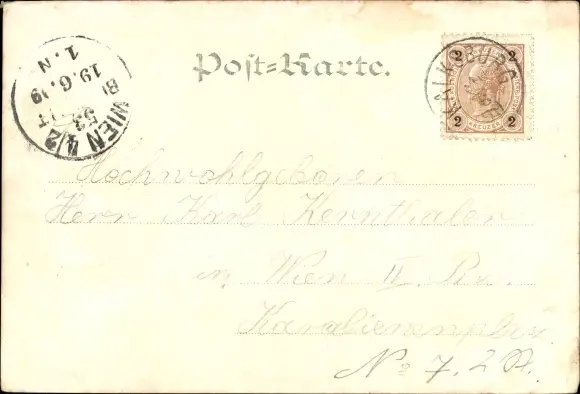 Post=Karte.
2 2
2 KREUZER 2
KALKSBURG
WIEN 4/2
53
19.6.99
1.N
Hochwohlgeboren
Herr Karl Kernthaler
in Wien IV. Bz.
No 7, 2